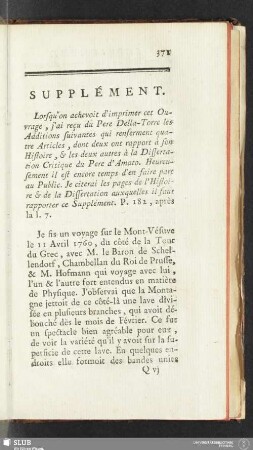 371
SUPPLÉMENT.
Lorsqu'on achevoit d'imprimer cet Ou-
vrage, j'ai reçu du Pere Della-Torre les
Additions suivantes qui renferment qua-
tre Articles, dont deux ont rapport à son
Histoire, & les deux autres à la Disserta-
tion Critique du Pere d'Amato. Heureu-
sement il est encore temps d'en faire part
au Public. Je citerai les pages de l'Histoi-
re & de la Dissertation auxquelles il faut
rapporter ce Supplément. P. 182, après
la l. 7.
Je fis un voyage sur le Mont-Vésuve
le 11 Avril 1760, du côté de la Tour
du Grec, avec M. le Baron de Schel-
lendorf, Chambellan du Roi de Prusse,
& M. Hofmann qui voyage avec lui,
l'un & l'autre fort entendus en matière
de Physique. J'observai que la Monta-
gne jettoit de ce côté-là une lave divi-
sée en plusieurs branches, qui avoit dé-
bouché dès le mois de Février. Ce fut
un spectacle bien agréable pour eux,
de voir la variété qu'il y avoit sur la su-
perficie de cette lave. En quelques en-
droits elle formoit des bandes unies
Q vj
SLUB